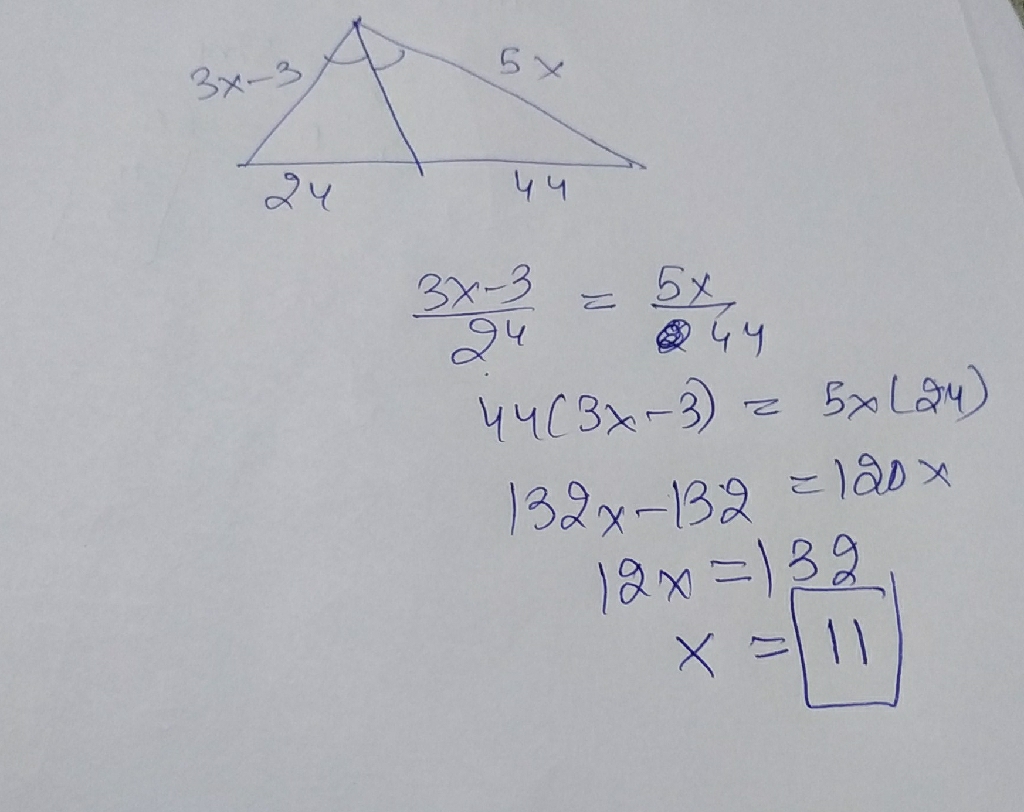 3x-3
5x
24
44
3x-3 / 24 = 5x / 44
44(3x-3) = 5x(24)
132x-132 = 120x
12x = 132
x = 11